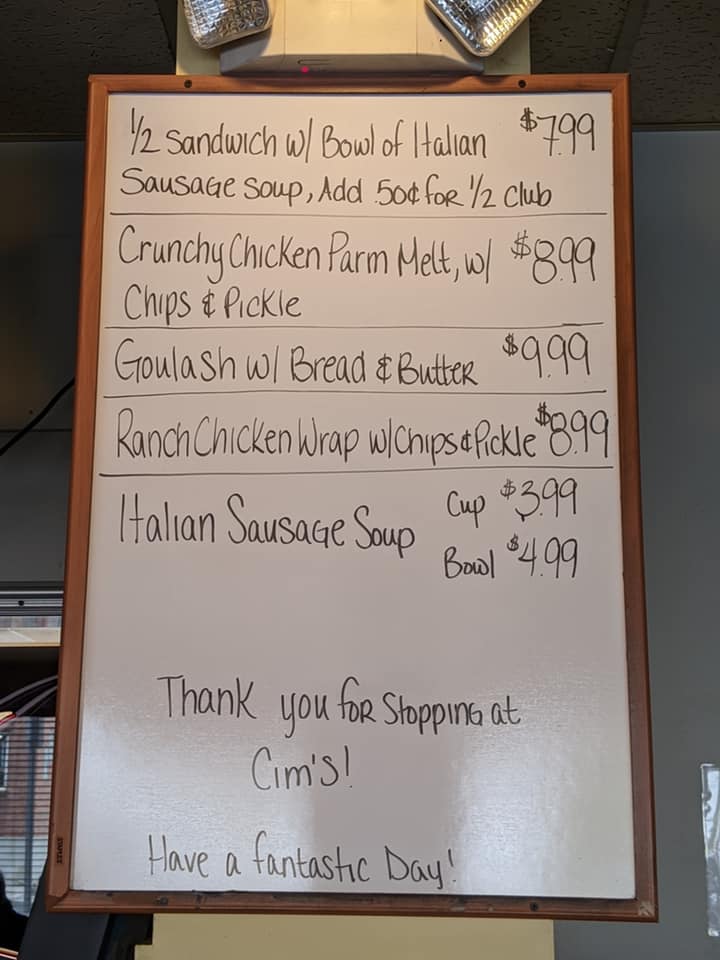 1/2 Sandwich w/ Bowl of Italian $7.99
Sausage Soup, Add .50¢ for 1/2 Club
Crunchy Chicken Parm Melt, w/ $8.99
Chips & Pickle
Goulash w/ Bread & Butter $9.99
Ranch Chicken Wrap w/Chips & Pickle $8.99
Italian Sausage Soup Cup $3.99
Bowl $4.99
Thank you for Stopping at
Cim's!
Have a fantastic Day!
STAPLES